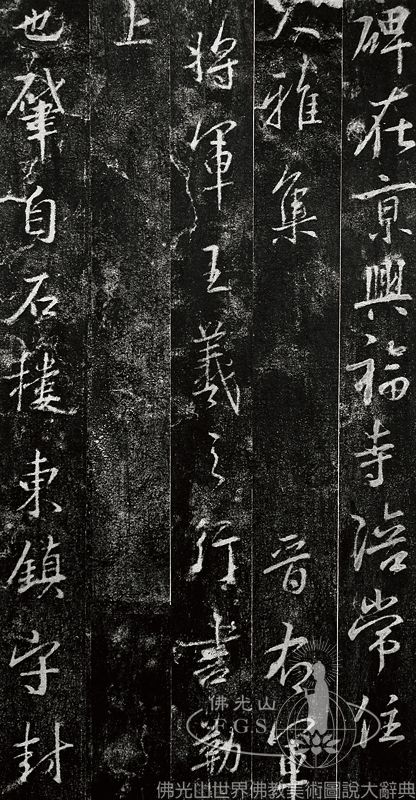 碑在京興福寺陪常住
大雅集 晋右軍
將軍王羲之行書勒
上
也肇自石樓東鎮守封
佛光山
F.G.S.
佛光山世界佛教美術圖說大辭典